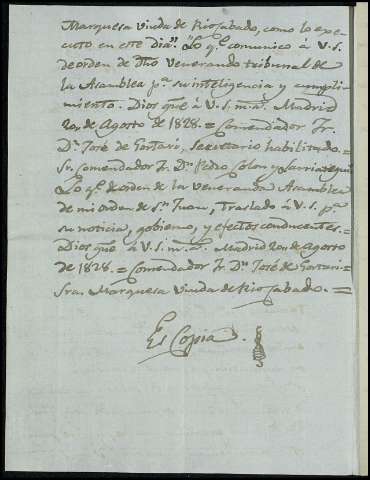 Marquesa viuda de Riosabado, como lo exe-
cuto en este dia". "Lo q.e comunico á V.S.
de orden de dho venerando tribunal de
la Asamblea p.a su inteligencia y cumpli-
miento. Dios gue á V.S. m.s a.s Madrid
20,, de Agosto de 1828. = Comendador Fr.
D.n José de Gastari, Secretario habilitado. =
Sr. Comendador Fr. D.n Pedro Colon y Larriategui
Lo q.e de orden de la veneranda Asamblea
de mi orden de S.n Juan, traslado á V.S. p.a
su noticia, gobierno, y efectos conducentes. =
Dios gue á V.S. m.s a.s Madrid 20,, de Agosto
de 1828. = Comendador Fr. D.n José de Gastari =
Sra. Marquesa Viuda de Rio Sabado. =
Es Copia.